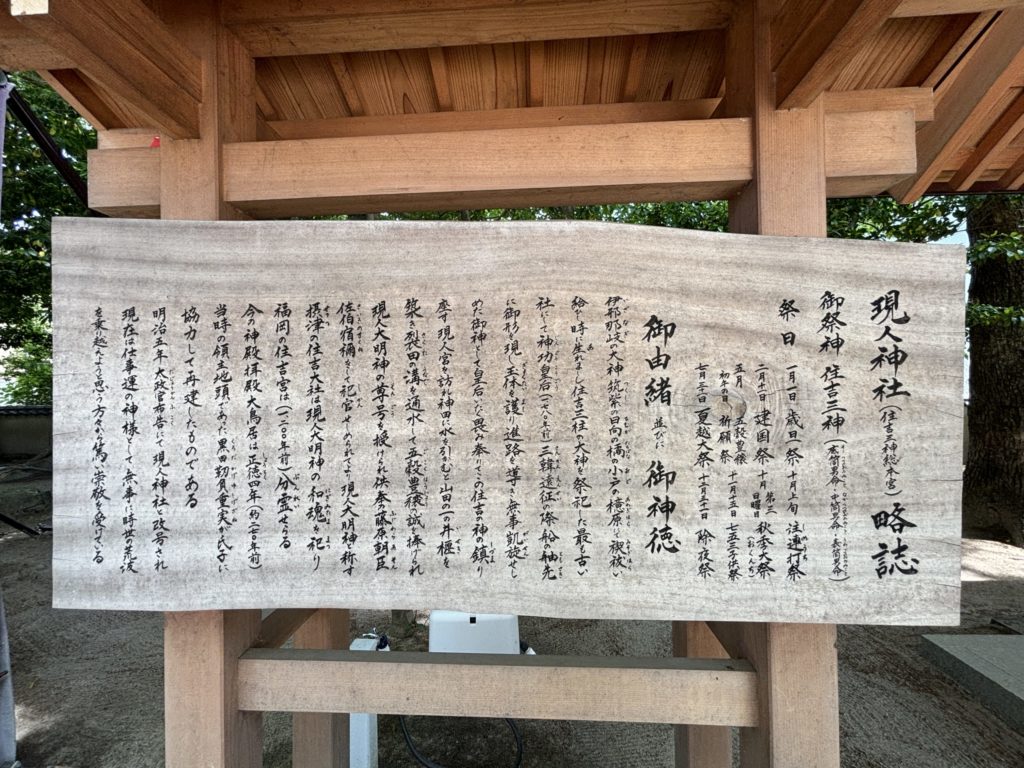 現人神社(住吉三神総本宮)略誌
御祭神 住吉三神(底筒男命・中筒男命・表筒男命)
祭日
一月一日 歳旦祭 十月上旬 注連打祭
二月十一日 建国祭 十月 第三日曜日 秋季大祭(おくんち)
五月 初午の日 五穀豊穣祈願祭 十一月十五日 七五三子供祭
七月三十一日 夏越大祭 十二月三十一日 除夜祭
御由緒 並びに 御神徳
伊邪那岐の大神 筑紫の日向の橘小戸の檍原にて禊祓い
給いし時に生れましし住吉三柱の大神を祭祀した最も古い
社にして神功皇后(一七〇〇年前)三韓遠征の際 船の舳先
に御形を現し玉体を護り進路を導き無事凱旋せし
めた御神として皇后いたく畏み奉りてこの住吉の神の鎮り
座す現人宮を訪れ神田に水を引かむと山田の一の井堰を
築き裂田の溝を通水して五穀豊穣の誠を捧げられ
現人大明神の尊号を授けられ供奉の藤原朝臣
佐伯宿禰をして祀官せしめられてより現人大明神と称す
摂津の住吉大社は現人大明神の和魂を祀り
福岡の住吉宮は(一二〇〇年前)分霊せらる
今の神殿拝殿大鳥居は正徳四年(約二八〇年前)
当時の領主地頭であった黒田靱負重実が氏子に
協力して再建したものである
明治五年太政官布告にて現人神社と改号され
現在は仕事運の神様として無事に時世の荒波
を乗り越えようと思う方々から篤い崇敬を受けている